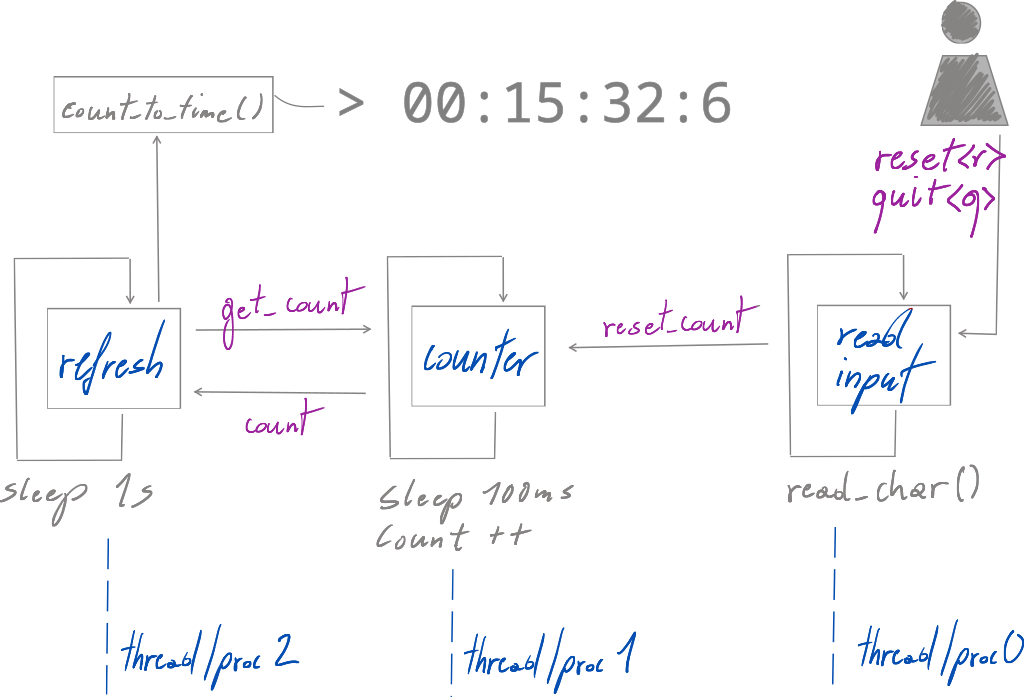 count_to_time()
> 00:15:32:6
reset<r>
quit<q>
get_count
refresh
count
counter
reset_count
read
input
sleep 1s
Sleep 100ms
Count ++
read_char()
thread/proc 2
thread/proc 1
thread/proc 0